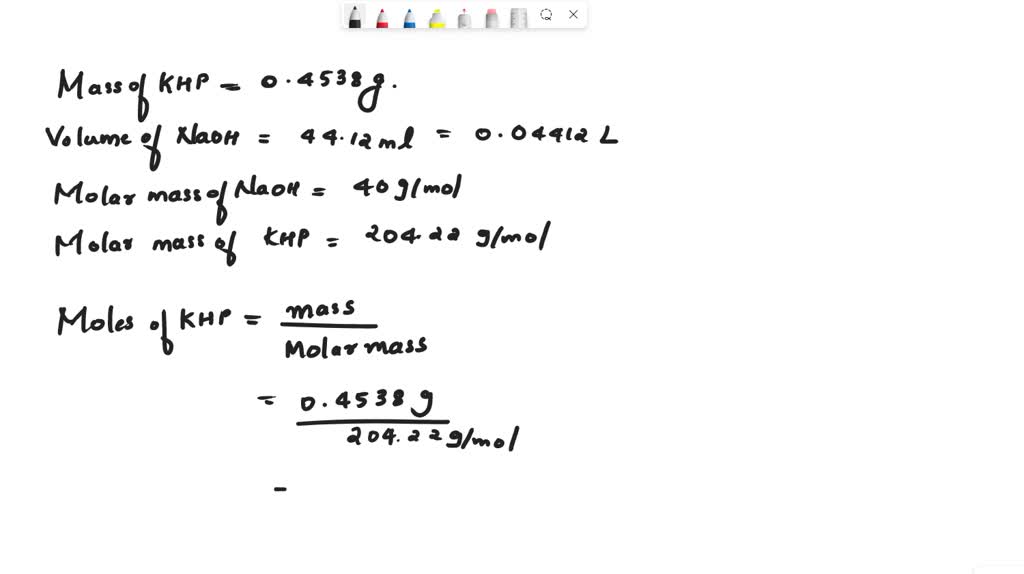 Mass of KHP = 0.4538g.
Volume of NaOH = 44.12 ml = 0.04412 L
Molar mass of NaOH = 40 g/mol
Molar mass of KHP = 204.22 g/mol
Moles of KHP = mass
Molar mass
= 0.4538 g
204.22 g/mol
=